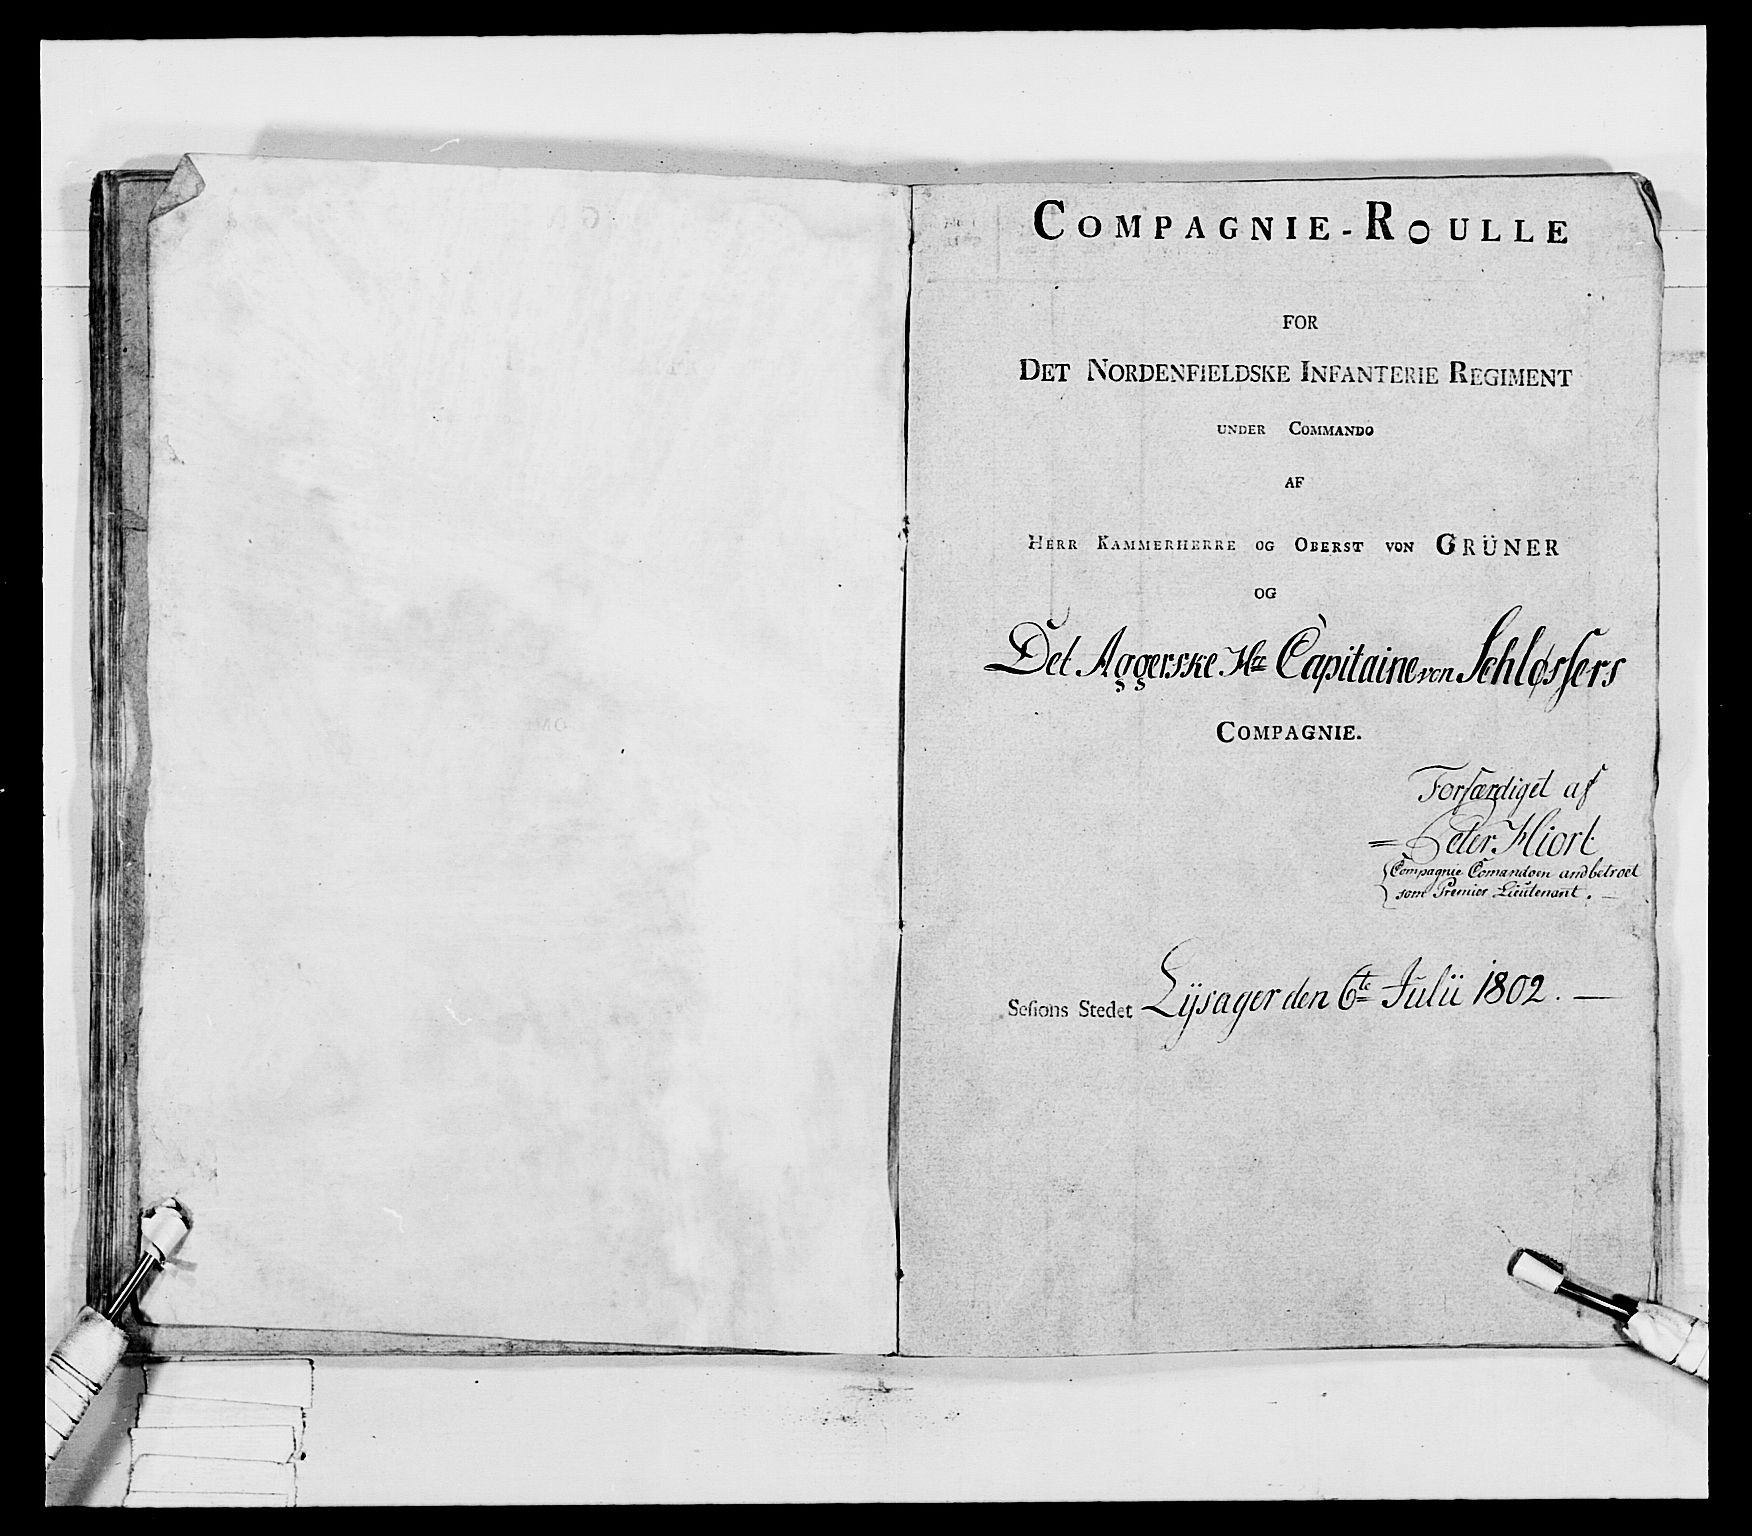 COMPAGNIE-ROULLE
FOR
DET NORDENFIELDSKE INFANTERIE REGIMENT
UNDER COMMANDO
AF
HERR KAMMERHERRE OG OBERST VON GRÜNER
OG
Det Aggerske Hr Capitaine von Schløssers
COMPAGNIE.
Forfærdiget af
Peter Hiort
Compagnie Comandoen andbetroet
som Premier Lieutenant.
Sesions Stedet Lijsager den 6te Julii 1802.